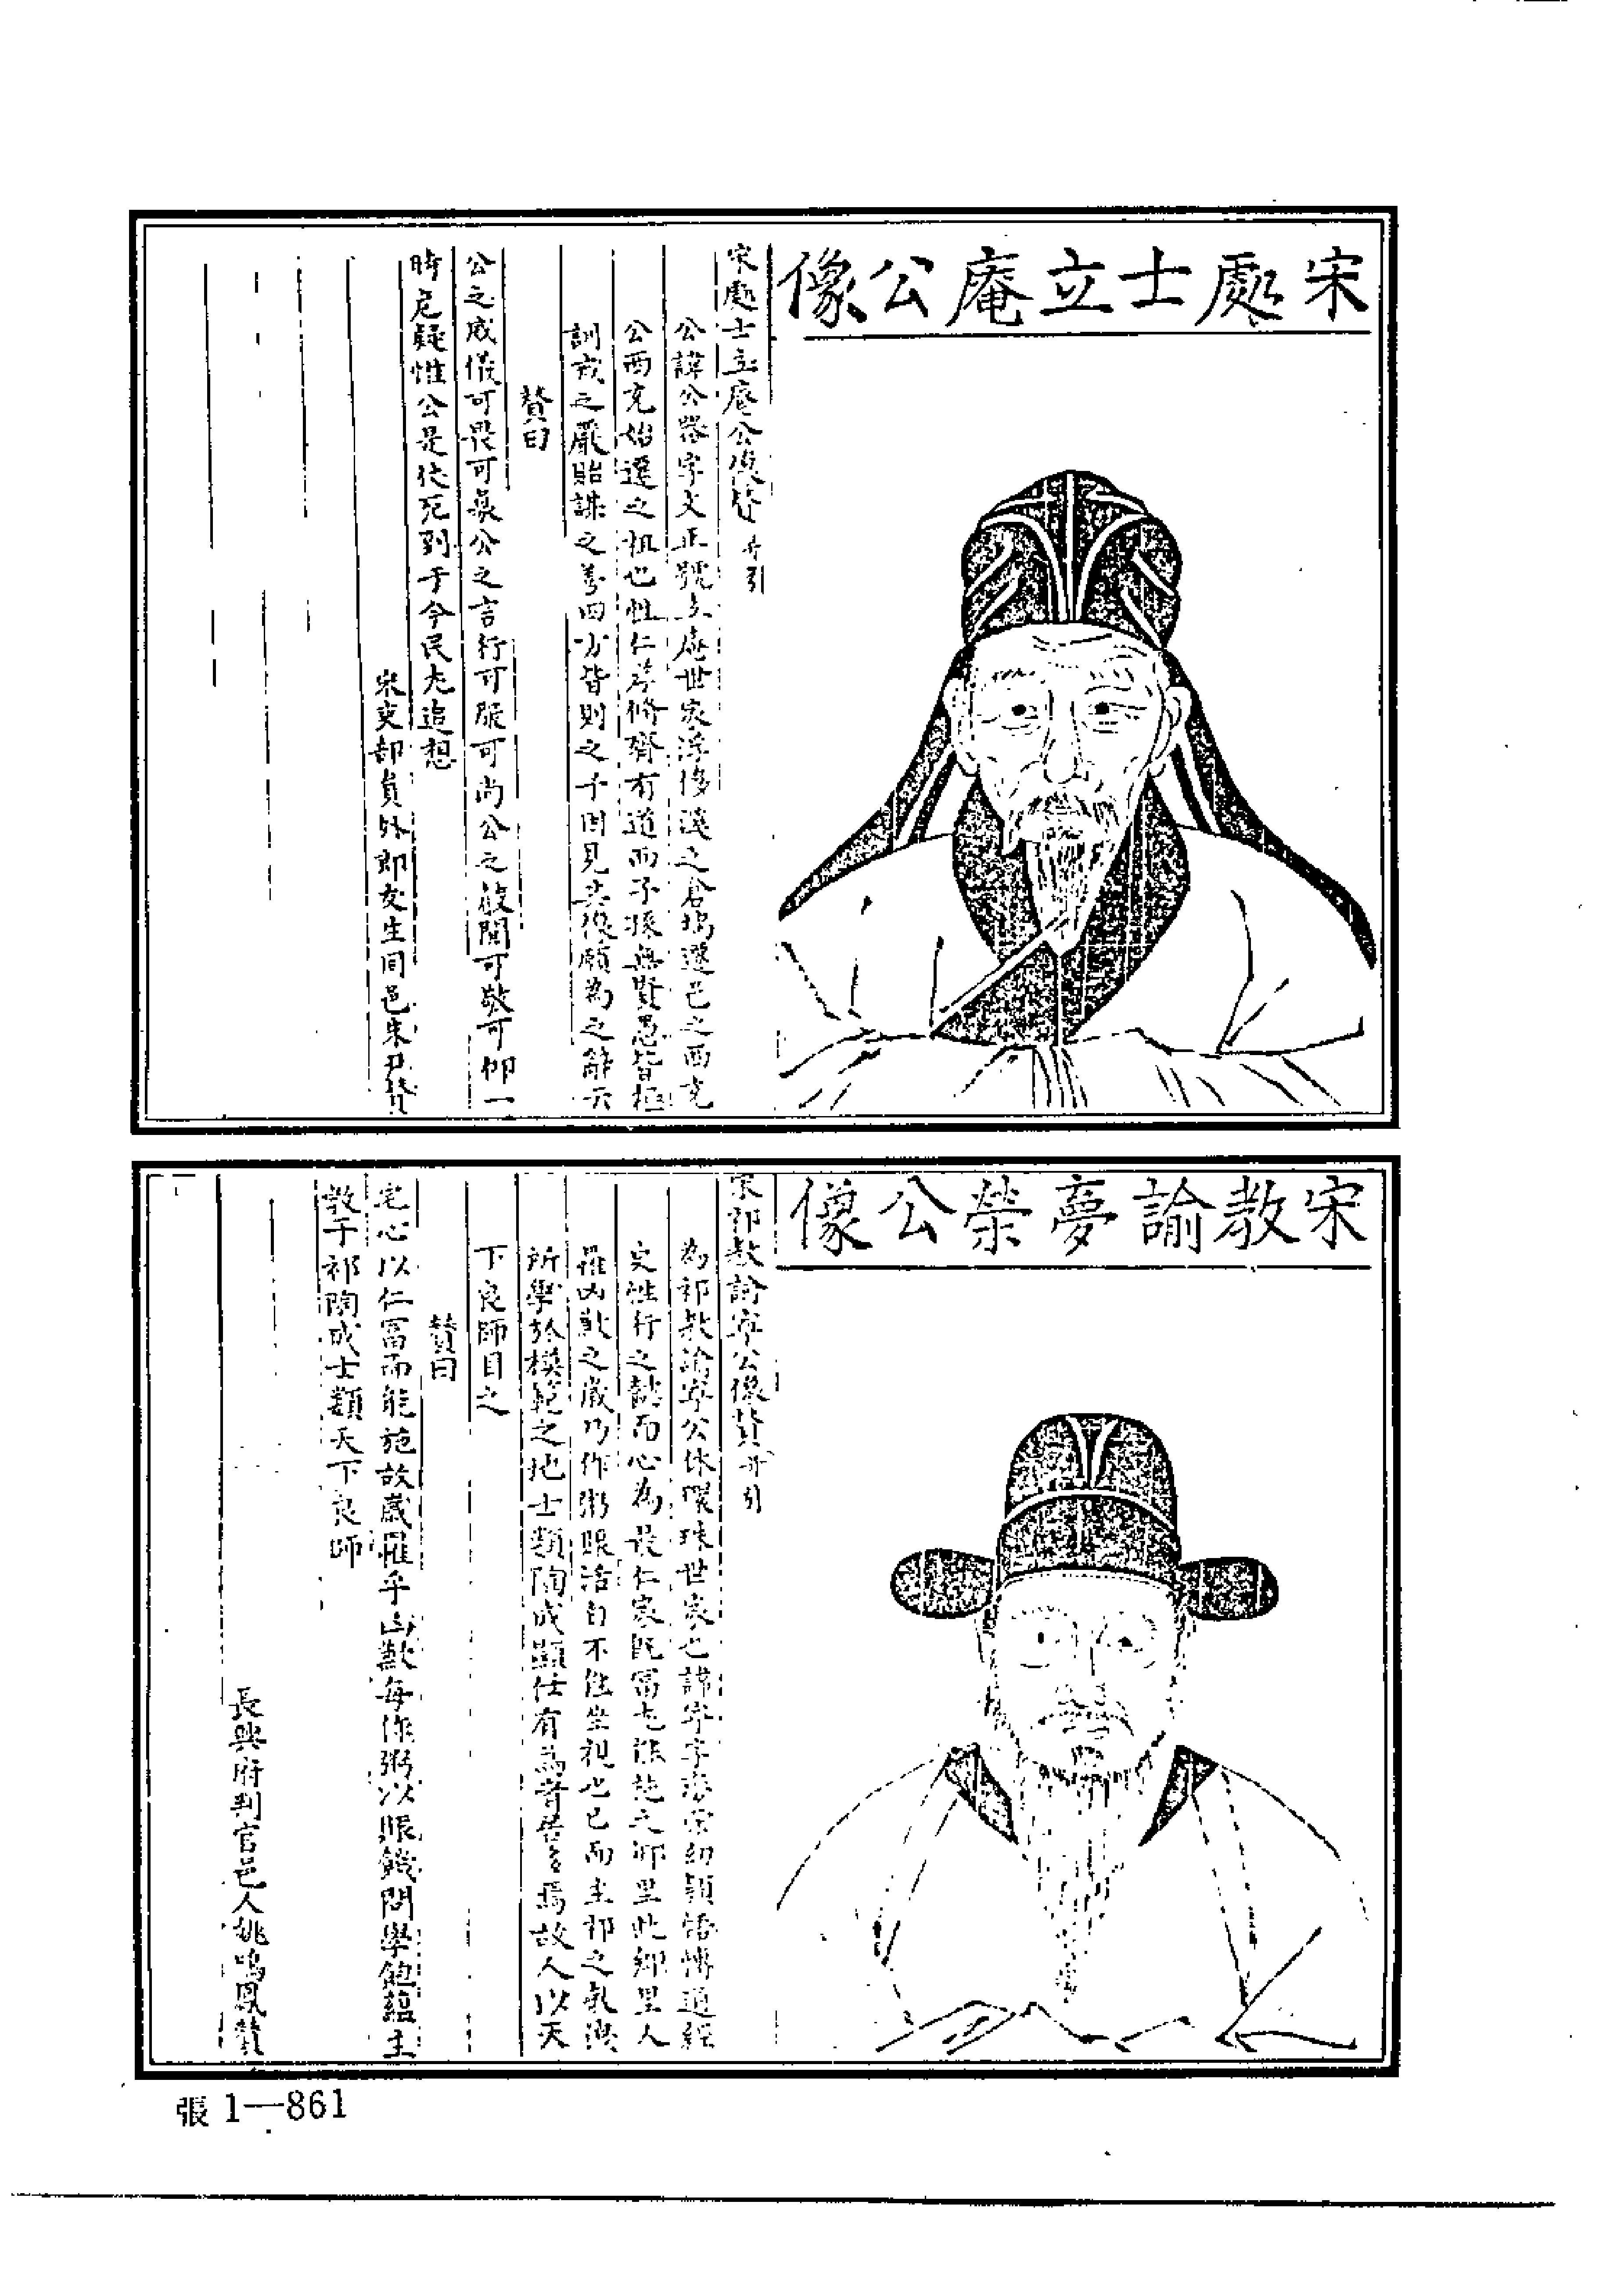 宋處士立庵公像
宋處士立庵公像贊并引
公諱公器字文正號立庵世家浮倏溪之倉塢遷邑之西充
公西充始遷之祖也性仁孝脩齊有道而子孫無賢愚皆
訓戒之嚴貽謀之善四方皆則之予因見其像願為之辭云
贊曰
公之威儀可畏可象公之言行可服可尚公之 可敬可仰一
時危疑惟公是依死到于今民尤追想
宋吏部員外郎友生同邑朱 贊
宋教諭夢榮公像
宋祁教諭寧公像贊并引
為祁教諭寧公休環珠世家也諱字 幼穎悟博通經
史性行之 而心為最仁家既富尤能施之鄉里此鄉里人
罹凶歉之歲乃作粥賑活自不能坐視也已而主祁之氣
所學於模範之地士類陶成顯仕有為者居多焉故人以天
下良師目之
贊曰
宅心以仁富而能施故歲罹乎凶歉每作粥以賑饑問學飽蘊主
教于祁陶成士類天下良師
長興府判官邑人姚鳴鳳贊
張1—861